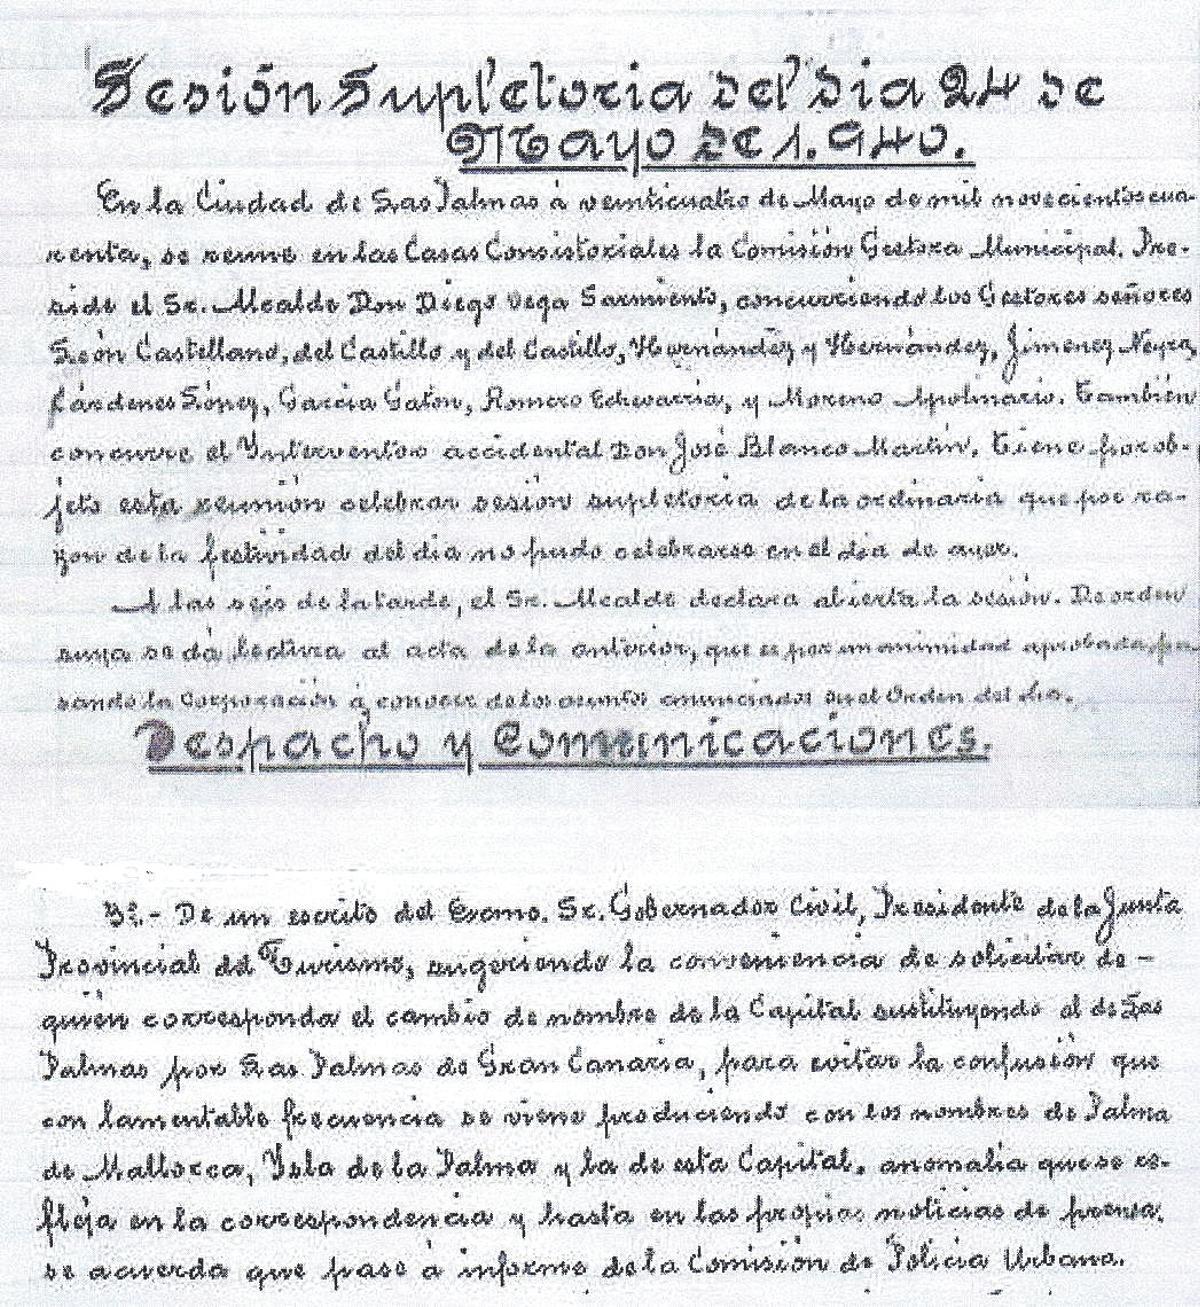 Sesión Supletoria del dia 24 de
Mayo de 1.940.
En la Ciudad de Las Palmas á veinticuatro de Mayo de mil novecientos cua-
renta, se reune en las Casas Consistoriales la Comisión Gestora Municipal. Pre-
side el Sr. Alcalde Don Diego Vega Sarmiento, concurriendo los Gestores señores
León Castellano, del Castillo y del Castillo, Hernández y Hernández, Jimenez Neyra,
Cárdenes López, Garcia Gatón, Romero Echevarria, y Moreno Apolinario. También
concurre el Interventor accidental Don José Blanco Martín. Tiene por ob-
jeto esta reunión celebrar sesión supletoria de la ordinaria que por ra-
zon de la festividad del dia no pudo celebrarse en el dia de ayer.
A las seis de la tarde, el Sr. Alcalde declara abierta la sesión. De orden
suya se dá lectura al acta de la anterior, que es por unanimidad aprobada, pa
sando la Corporación á conocer de los asuntos anunciados en el Orden del dia.
Despacho y Comunicaciones.
3º.- De un escrito del Excmo. Sr. Gobernador Civil, Presidente de la Junta
Provincial del Turismo, sugeriendo la conveniencia de solicitar de -
quien corresponda el cambio de nombre de la Capital sustituyendo el de Las
Palmas por Las Palmas de Gran Canaria, para evitar la confusión que
con lamentable frecuencia se viene produciendo con los nombres de Palma
de Mallorca, Isla de la Palma y la de esta Capital, anomalia que se re-
fleja en la correspondencia y hasta en las propias noticias de prensa.
se acuerda que pase á informe de la Comisión de Policia Urbana.